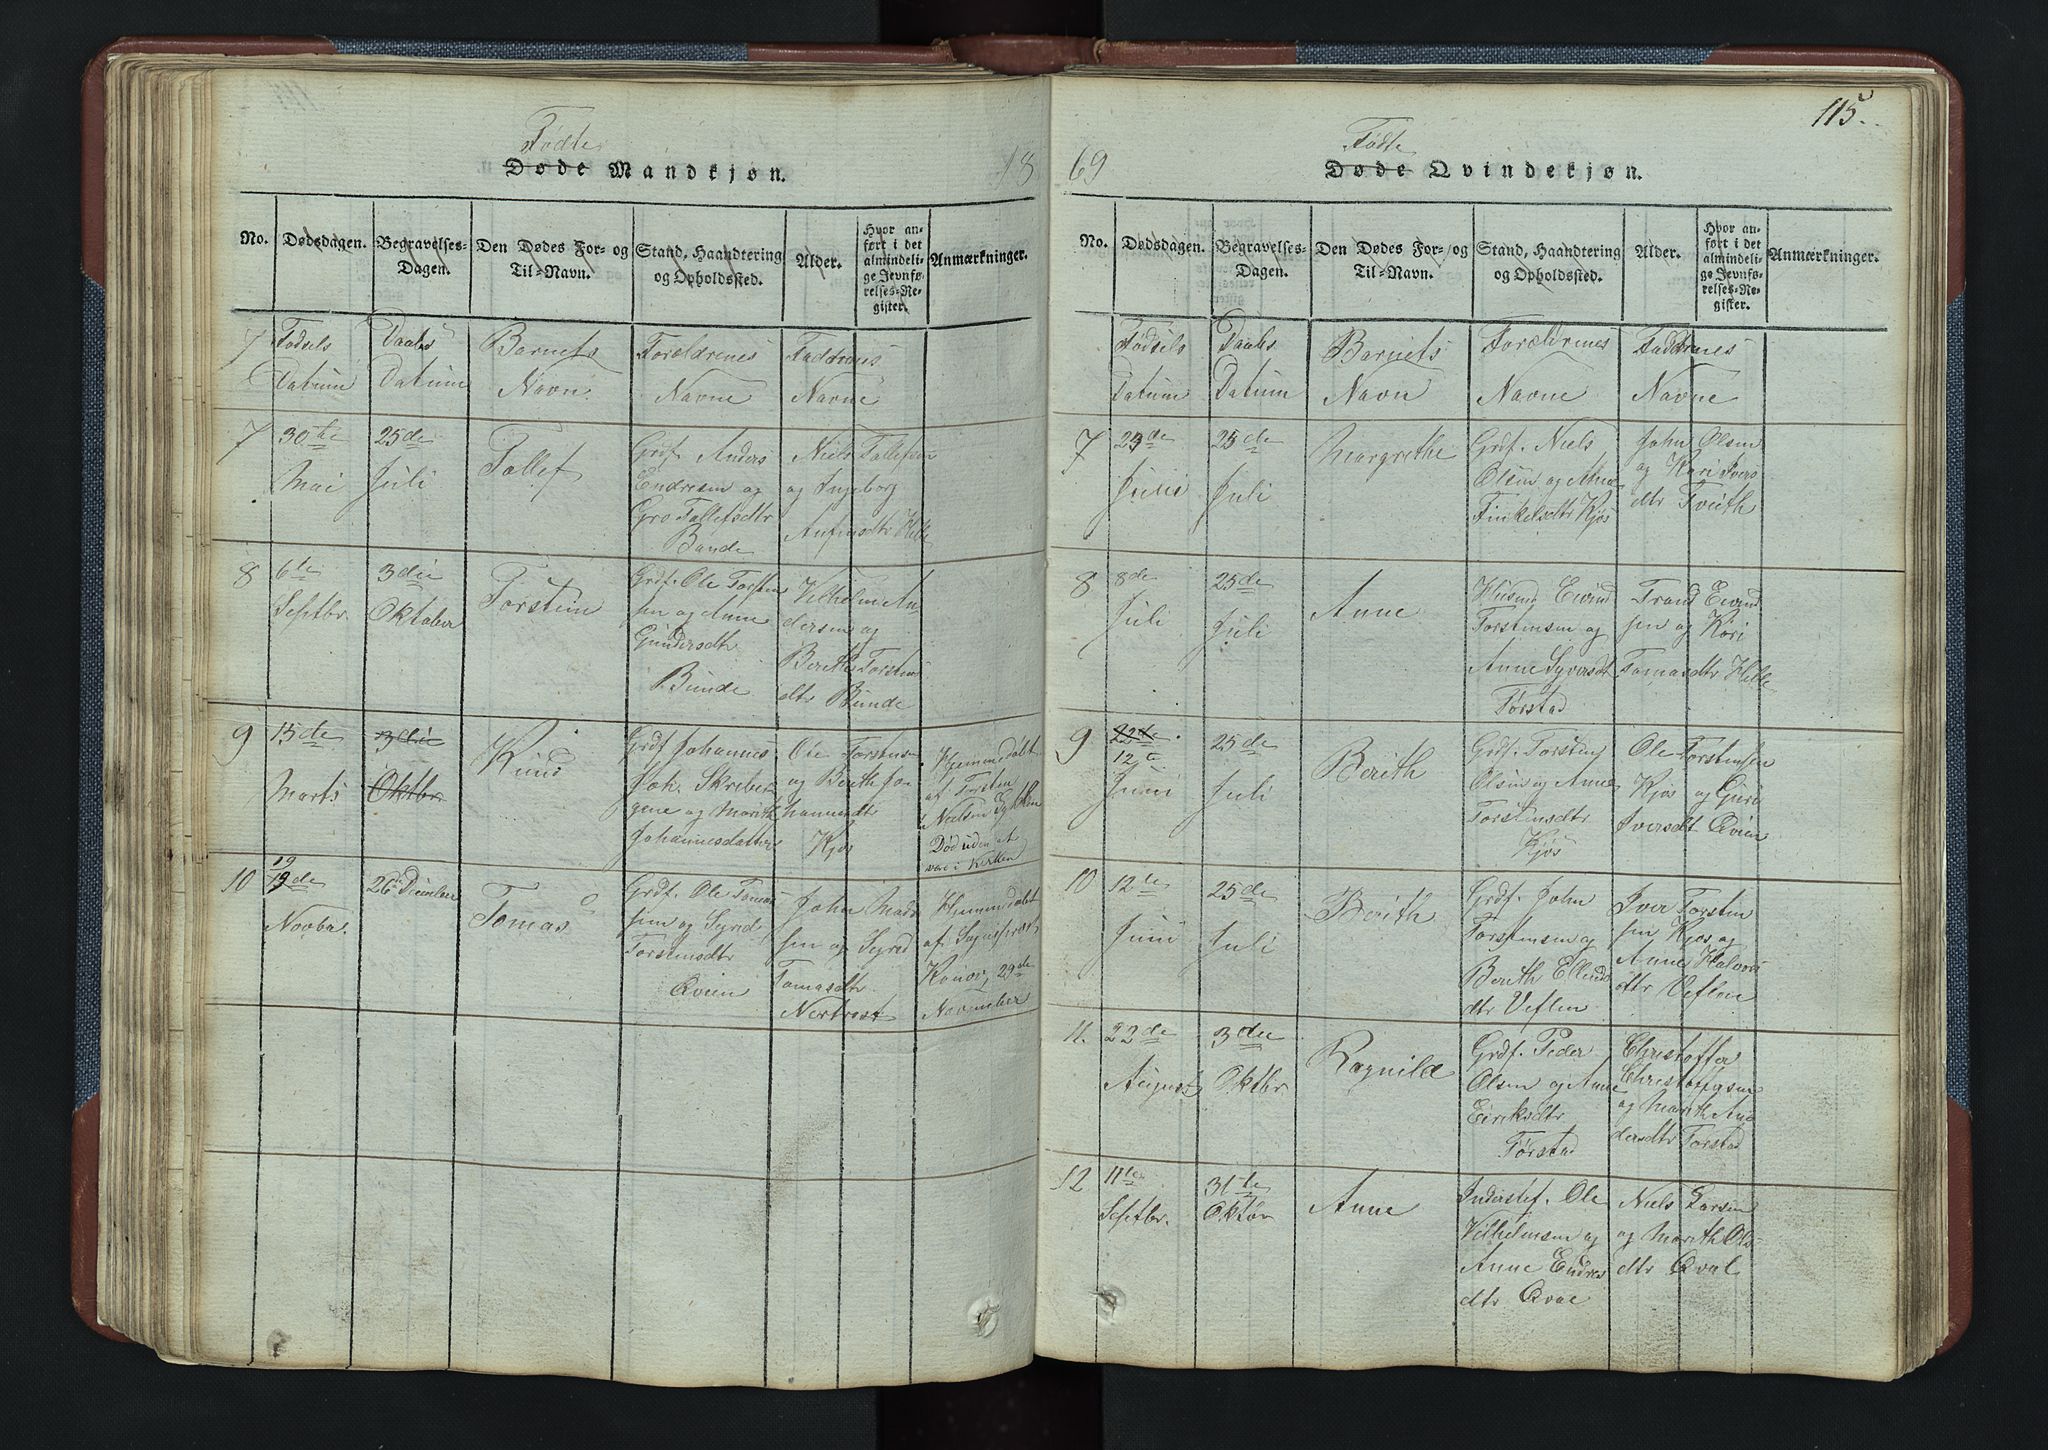 115.
Fødte
Døde Mandkjøn.
18
No.
Dødsdagen.
Begravelses-
Dagen.
Den Dødes For- og
Til-Navn.
Stand, Haandtering
og Opholdssted.
Alder.
Hvor an-
ført i det
almindeli-
ge Jevnfø-
relses-Re-
gister.
Anmærkninger.
Fødsels
Datum
Daabs
Datum
Barnets
Navn.
Forældrenes
Navne
Faddrenes
Navne
7
30te
Mai
25de
Juli
Tollef
Grdf. Anders
Endresen og
Gro Tollefsdtr
Bunde
Niels Tollefsen
og Ingeborg
Anfinsdtr Helle
8
6te
Septbr.
3die
Oktober
Torsten
Grdf. Ole Torsten
sen og Anne
Gundersdtr
Bunde
Vilhelm An
dersen og
Berithe Torstens
dtr Bunde
9
15de
Marts
3die
Oktbr.
Knud
Grdf Johannes
Joh. Skreber
gene og Marith
Johannesdatter
Ole Torstens
og Berith Jo
hannesdt
Kjøs
Hjemmedøbt
af Torsten
Nielsen
Død uden at
være i Kirken
10
19
19de
Novbr.
26de December
Tomas
Grdf. Ole Tomas
sen og Sygrid
Torstensdtr
Qvien
John Mad
sen og Sygrid
Tomasdtr
Nertrøst
Hjemmedøbt
af Sognepræst
29de
November
69
Fødte
Døde Qvindekjøn.
No.
Dødsdagen.
Begravelses-
Dagen.
Den Dødes For- og
Til-Navn.
Stand, Haandtering
og Opholdssted.
Alder.
Hvor an-
ført i det
almindeli-
ge Jevnfø-
relses-Re-
gister.
Anmærkninger.
Fødsels
Datum
Daabs
Datum
Barnets
Navn
Forældrenes
Navne
Faddrenes
Navne
7
23de
Juni
25de
Juli
Margrethe
Grdf. Niels
Olsen og Anne
Finkelsdtr Kjøs
John Olsen
og Kari Ivers
dtr Tveith
8
8de
Juli
25de
Juli
Anne
Husmd Eivind
Torstensen og
Anne Syversdt
Tørstad
Trond Eivind
sen og Kari
Tomasdtr Helle
9
22de
12te
Juni
25de
Juli
Berith
Grdf. Torsten
Olsen og Anne
Torstensdtr
Kjøs
Ole Torstensen
Kjøs og Guri
Iversdt Qvien
10
12te
Juni
25de
Juli
Berith
Grdf. John
Torstensen og
Berith Ellends
dtr Veflen
Iver Torsten
sen Kjøs og
Anne Halvors
dtr Veflen
11.
22de
August
3die
Oktbr
Ragnild
Grdf. Peder
Olsen og Anne
Eiriksdtr
Tørstad
Christoffer
Christoffersen
og Marith An
dersdtr Tørstad
12
11te
Septbr.
31te
Oktbr
Anne
Inderstef. Ole
Vilhelmsen og
Anne Endres
dtr Qvae
Niels Larsen
og Marith Ols
dtr Qval